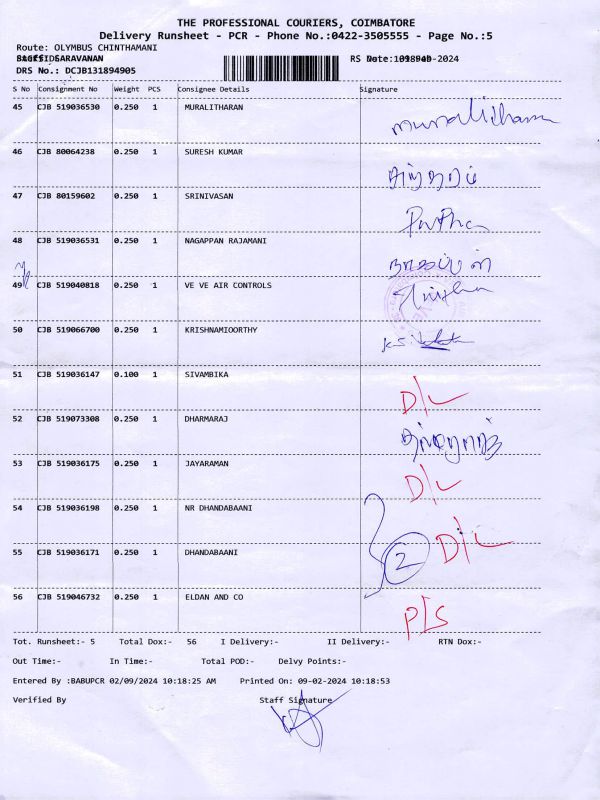 THE PROFESSIONAL COURIERS, COIMBATORE
Delivery Runsheet - PCR - Phone No.:0422-3505555 - Page No.:5
Route: OLYMBUS CHINTHAMANI
SARAVANAN
DRS No.: DCJB131894905
S No Consignment No Weight PCS Consignee Details Signature
45 CJB 519036530 0.250 1 MURALITHARAN
46 CJB 80064238 0.250 1 SURESH KUMAR
47 CJB 80159602 0.250 1 SRINIVASAN
48 CJB 519036531 0.250 1 NAGAPPAN RAJAMANI
49 CJB 519040818 0.250 1 VE VE AIR CONTROLS
50 CJB 519066700 0.250 1 KRISHNAMIOORTHY
51 CJB 519036147 0.100 1 SIVAMBIKA D/L
52 CJB 519073308 0.250 1 DHARMARAJ
53 CJB 519036175 0.250 1 JAYARAMAN D/L
54 CJB 519036198 0.250 1 NR DHANDABAANI
55 CJB 519036171 0.250 1 DHANDABAANI 2 D/L
56 CJB 519046732 0.250 1 ELDAN AND CO P/S
Tot. Runsheet:- 5 Total Dox:- 56 I Delivery:- II Delivery:- RTN Dox:-
Out Time:- In Time:- Total POD:- Delvy Points:-
Entered By :BABUPCR 02/09/2024 10:18:25 AM Printed On: 09-02-2024 10:18:53
Verified By Staff Signature